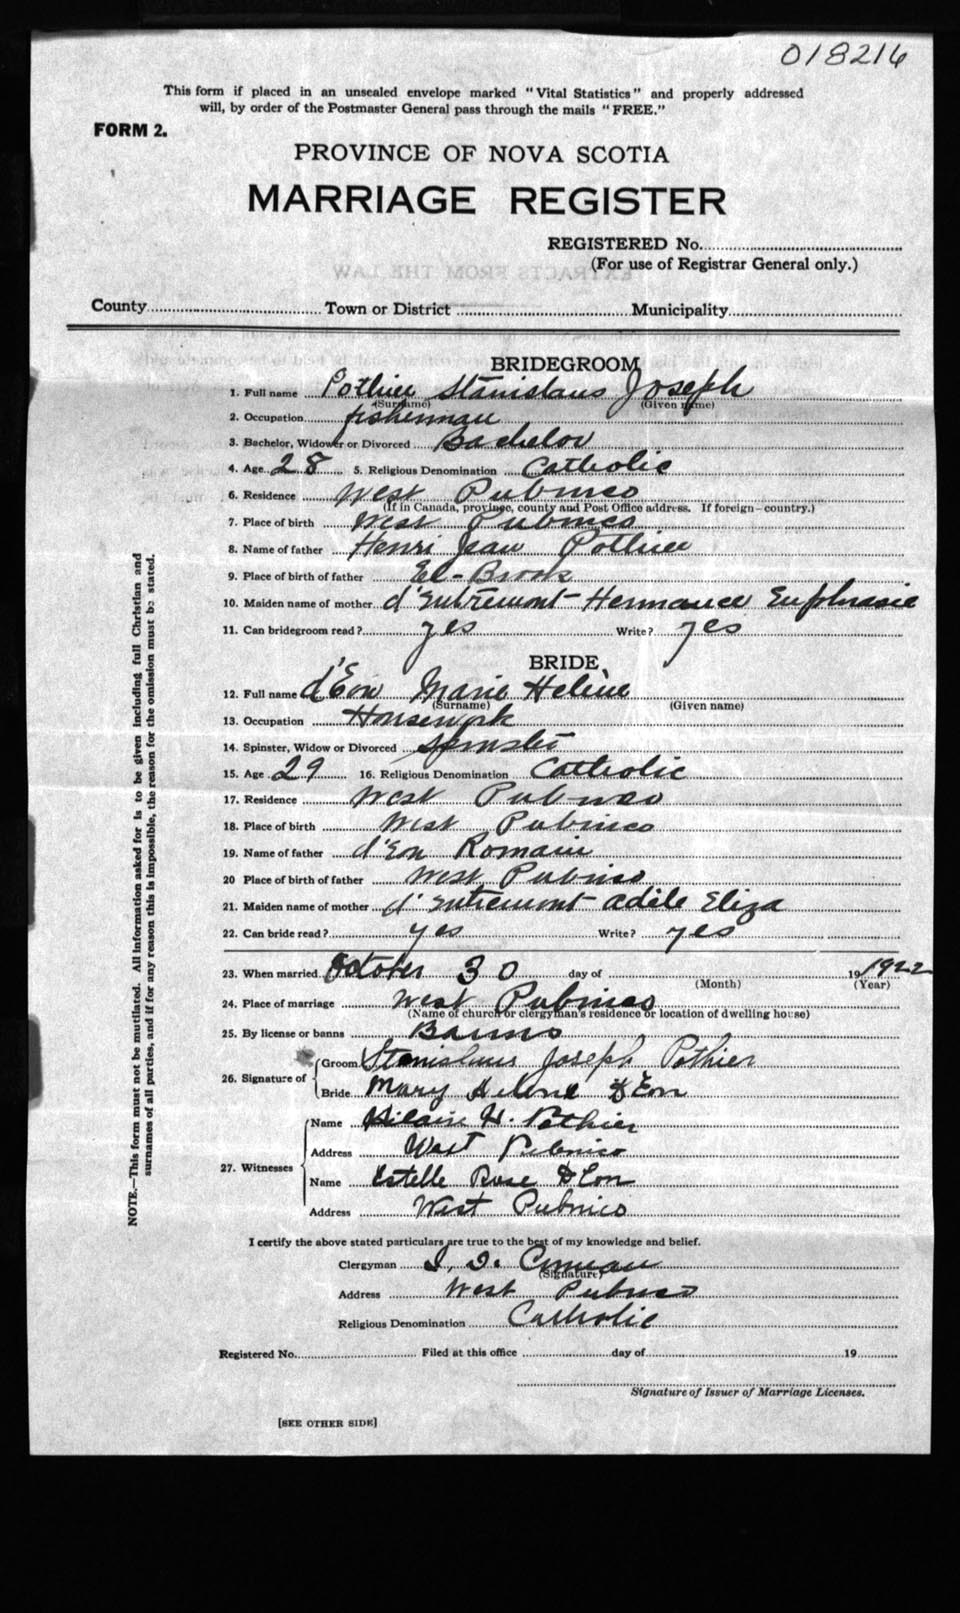 018216
This form if placed in an unsealed envelope marked "Vital Statistics" and properly addressed
will, by order of the Postmaster General pass through the mails "FREE."
FORM 2.
PROVINCE OF NOVA SCOTIA
MARRIAGE REGISTER
REGISTERED No.
(For use of Registrar General only.)
EXTRACTS FROM THE LAW
County Town or District Municipality
BRIDEGROOM
1. Full name Pothier Stanislaus Joseph
(Surname) (Given name)
2. Occupation fisherman
3. Bachelor, Widower or Divorced Bachelor
4. Age 28 5. Religious Denomination Catholic
6. Residence West Pubnico
(If in Canada, province, county and Post Office address. If foreign—country.)
7. Place of birth West Pubnico
8. Name of father Henri Jean Pothier
9. Place of birth of father Eel-Brook
10. Maiden name of mother d'Entremont Hermance Euphrasie
11. Can bridegroom read? yes Write? yes
BRIDE
12. Full name d'Eon Marie Helène
(Surname) (Given name)
13. Occupation Housework
14. Spinster, Widow or Divorced Spinster
15. Age 29 16. Religious Denomination Catholic
17. Residence West Pubnico
18. Place of birth West Pubnico
19. Name of father d'Eon Romain
20 Place of birth of father West Pubnico
21. Maiden name of mother d'Entremont Adèle Eliza
22. Can bride read? yes Write? yes
23. When married October 30 day of 19 1922
(Month) (Year)
24. Place of marriage West Pubnico
(Name of church or clergyman's residence or location of dwelling house)
25. By license or banns Banns
26. Signature of Groom Stanislaus Joseph Pothier
Bride Mary Helene d'Eon
27. Witnesses Name Hilaire H. Pothier
Address West Pubnico
Name Estelle Rose d'Eon
Address West Pubnico
I certify the above stated particulars are true to the best of my knowledge and belief.
Clergyman Comeau
(Signature)
Address West Pubnico
Religious Denomination Catholic
Registered No. Filed at this office day of 19
Signature of Issuer of Marriage Licenses.
[SEE OTHER SIDE]
NOTE.—This form must not be mutilated. All information asked for is to be given including full Christian and
surnames of all parties, and if for any reason this is impossible, the reason for the omission must be stated.